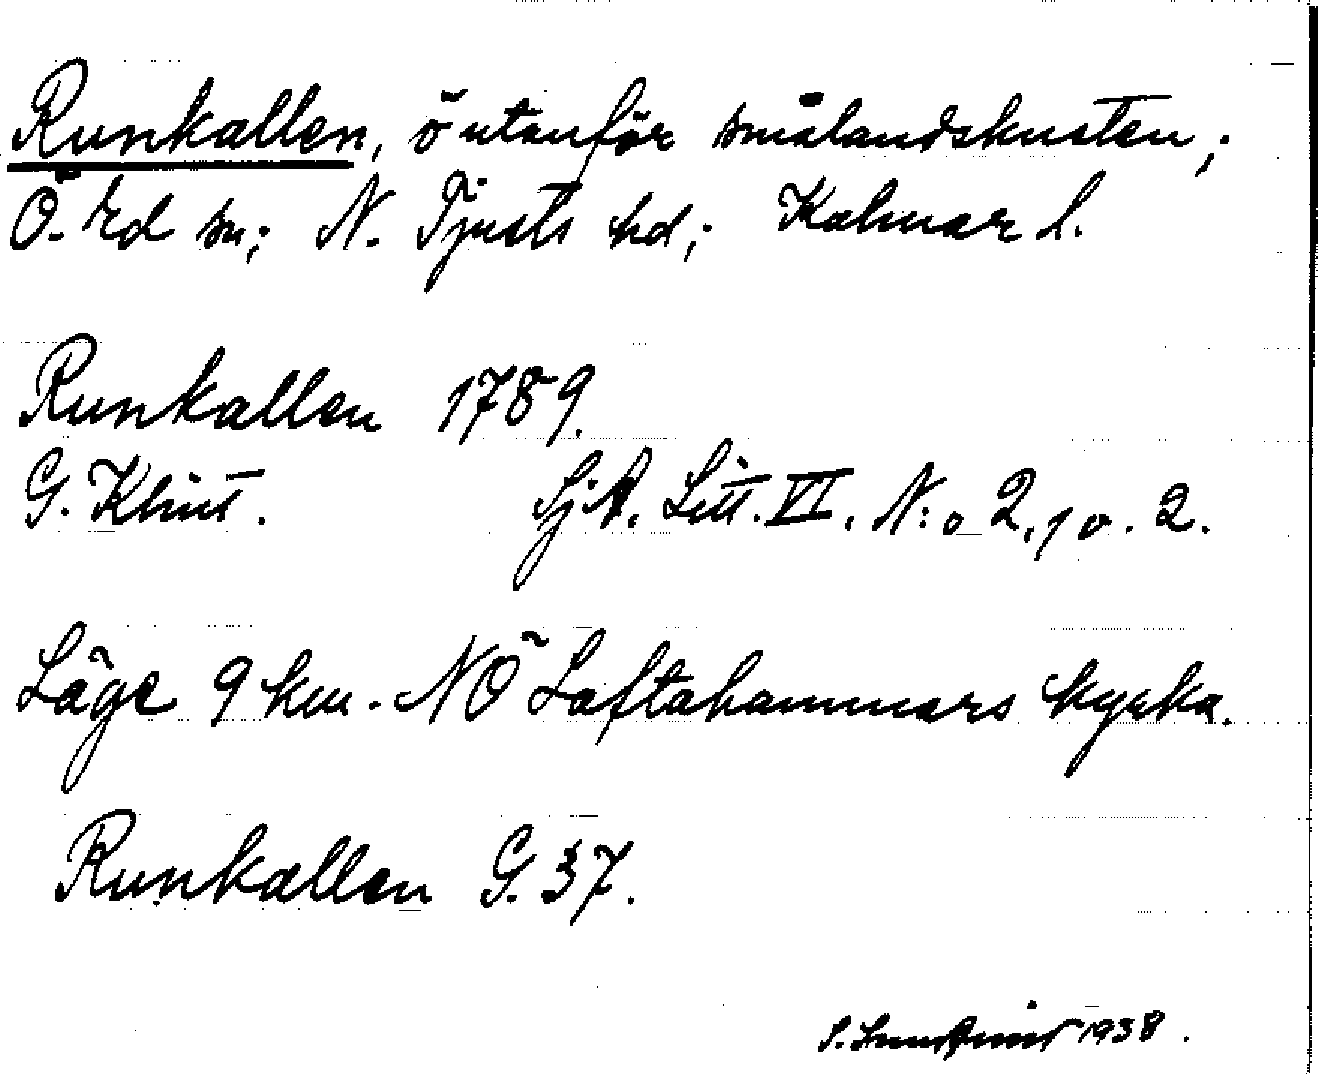 Runkallen, ö utanför smålandskusten,;
Ö. Ed sn; N. Tjusts hd,; Kalmar l.
Runkallen 1789.
G. Klint. SjA. Litt. VI. N:o 2, 1 o. 2.
Läge 9 km. NÖ Loftahammars kyrka.
Runkallen G. 37.
S. Lundqvist 1938.